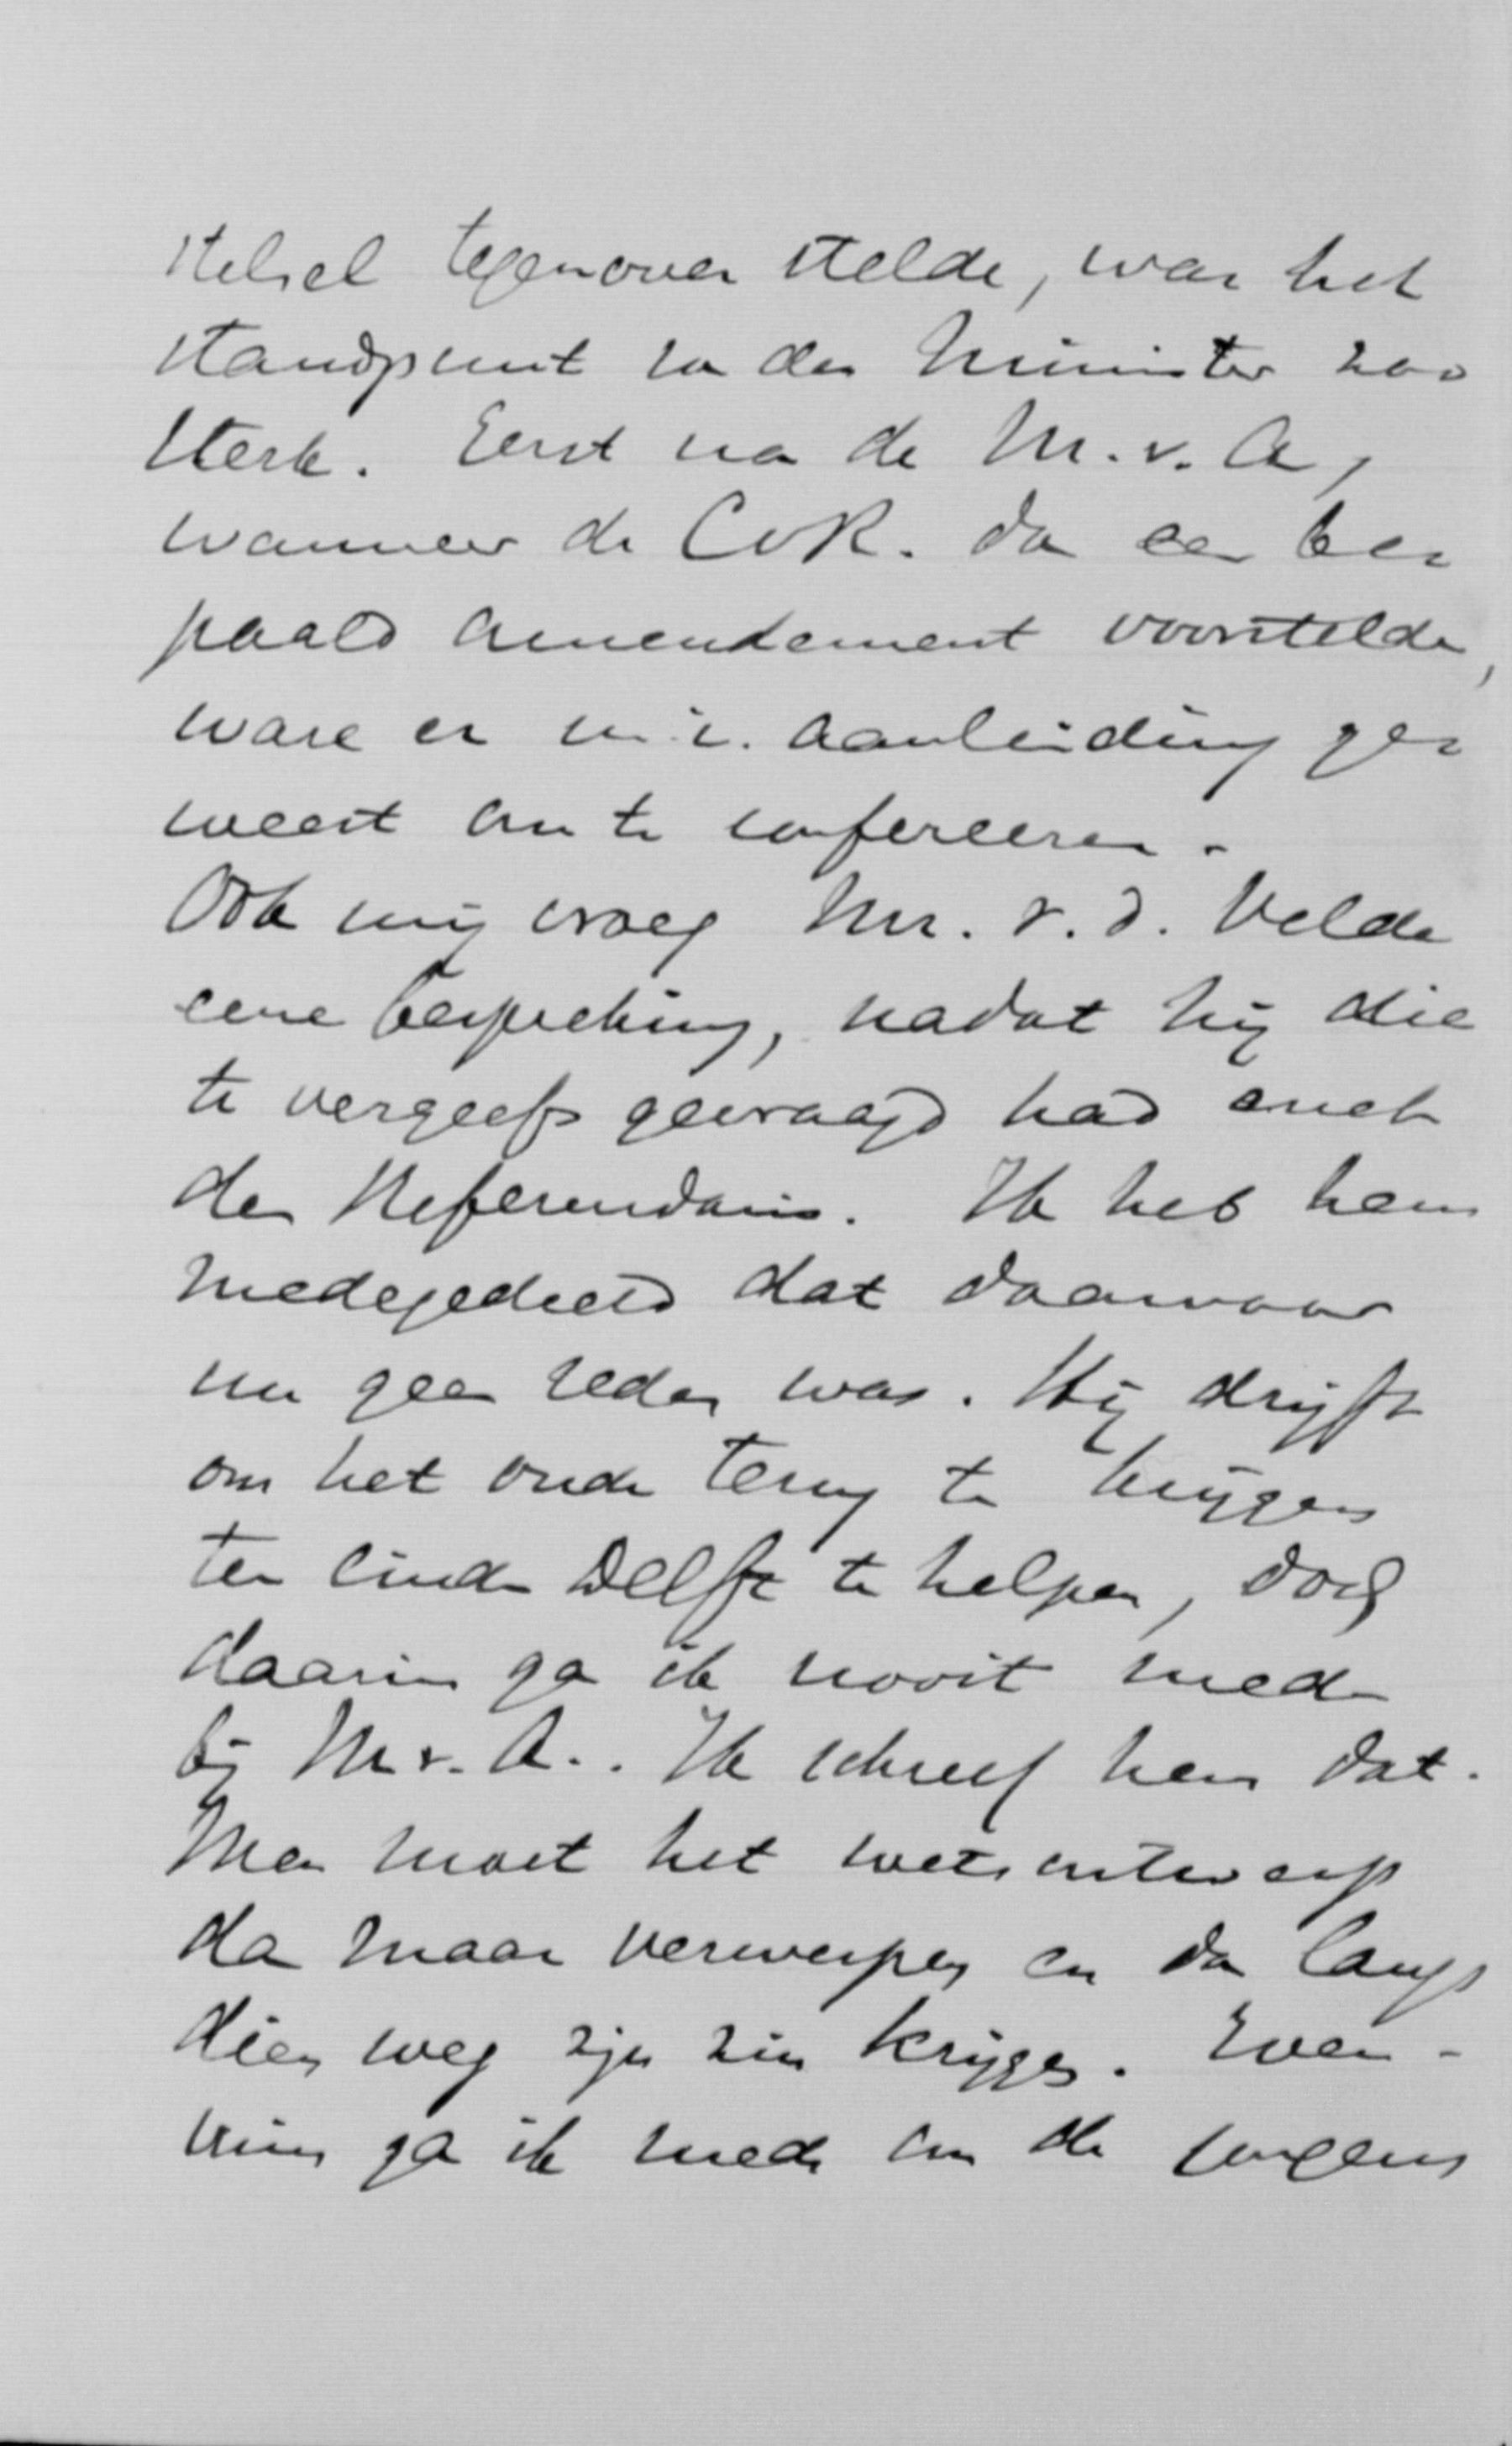 stelsel tegenover stelde, was het
standpunt van den Minister zoo
sterk. Eerst na de M.v.A,
wanneer de CvR. dan een be=
paald amendement voorstelde,
ware er m.i. aanleiding ge=
weest om te confereeren.
Ook mij vroeg Mr. v. d. Velde
eene bespreking, nadat hij die
te vergeefs gevraagd had met
den Referendaris. Ik heb hem
medegedeeld dat daarvoor
nu geen reden was. Hij drijft
om het oude terug te krijgen
ten einde Delft te helpen, doch
daarin ga ik nooit mede
bij M.v.A.. Ik schreef hem dat.
Men moet het wetsontwerp
dan maar verwerpen en dan langs
dien weg zijn zin krijgen. Even-
min ga ik mede om de